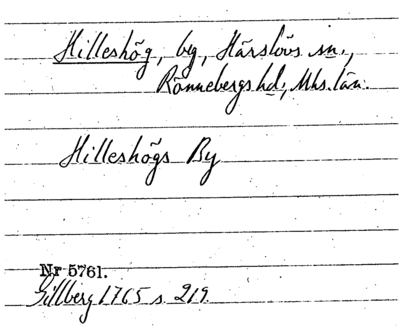 Hilleshög, by, Härslövs sn.,
Rönnebergs hd., Mhs. län.
Hilleshögs By
Nr 5761.
Gillberg 1765 s. 219.